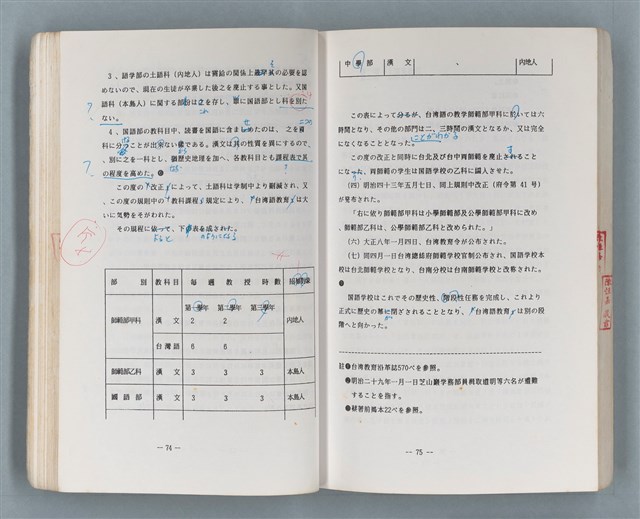 3、語学部の土語科(内地人)は需給の関係上
の必要を認
めないので、現在の生徒が卒業した後之を廃止する事とした。又国
語科(本島人)に関する部
は之を存し、単に国語部とし科を別た
ない。
4、国語部の教科目中、読書を国語に含ましめたのは、之を
科に分つことが出来ない儀である。漢文は其の性質を異にするので、
別に之を一科とし、猶歴史地理を加へ、各教科目とも課程表で其
の程度を高めた。
この度の「改正」によって、土語科は学制中より削減され、又
この度の規則中の「教科課程」規定により、「台湾語教育」は大
いに気勢をそがれた。
その規程に依って、下
表を成された。
部 別 教科目 毎週教授時数
第一学年 第二学年 第三学年
師範部甲科 漢文 2 2 内地人
台湾語 6 6
師範部乙科 漢文 3 3 3 本島人
国語部 漢文 3 3 3 本島人
-- 74 --
中学部 漢文 、 内地人
この表によって分るが、台湾語の教学師範部甲科に於いては六
時間となり、その他の部門は二、三時間の漢文となるか、又は完全
になくなることとなった。
この度の改正と同時に台北及び台中両師範を廃止されること
になった、両師範の学生は国語学校の乙科に編入させた。
(四)明治四十三年五月七日、同上規則中改正(府令第41号)
が発布された。
「右に依り師範部甲科は小学師範部及公学師範部甲科に改め
、師範部乙科は、公学師範部乙科と改められた。」
(六)大正八年一月四日、台湾教育令が公布された。
(七)同四月一日台湾総督府師範学校官制公布され、国語学校本
校は台北師範学校となり、台南分校は台南師範学校と改称された。
国語学校はこれでその歴史性、階段性任務を完成し、これより
正式に歴史の幕に閉ざされることとなり、「台湾語教育」は別の段
階へと向かった。
註❶台湾教育沿革誌570ぺを参照。
❷明治二十九年一月一日芝山巌学務部員楫取道明等六名が遭難
することを指す。
❸種著前掲本22ぺを参照。
-- 75 --